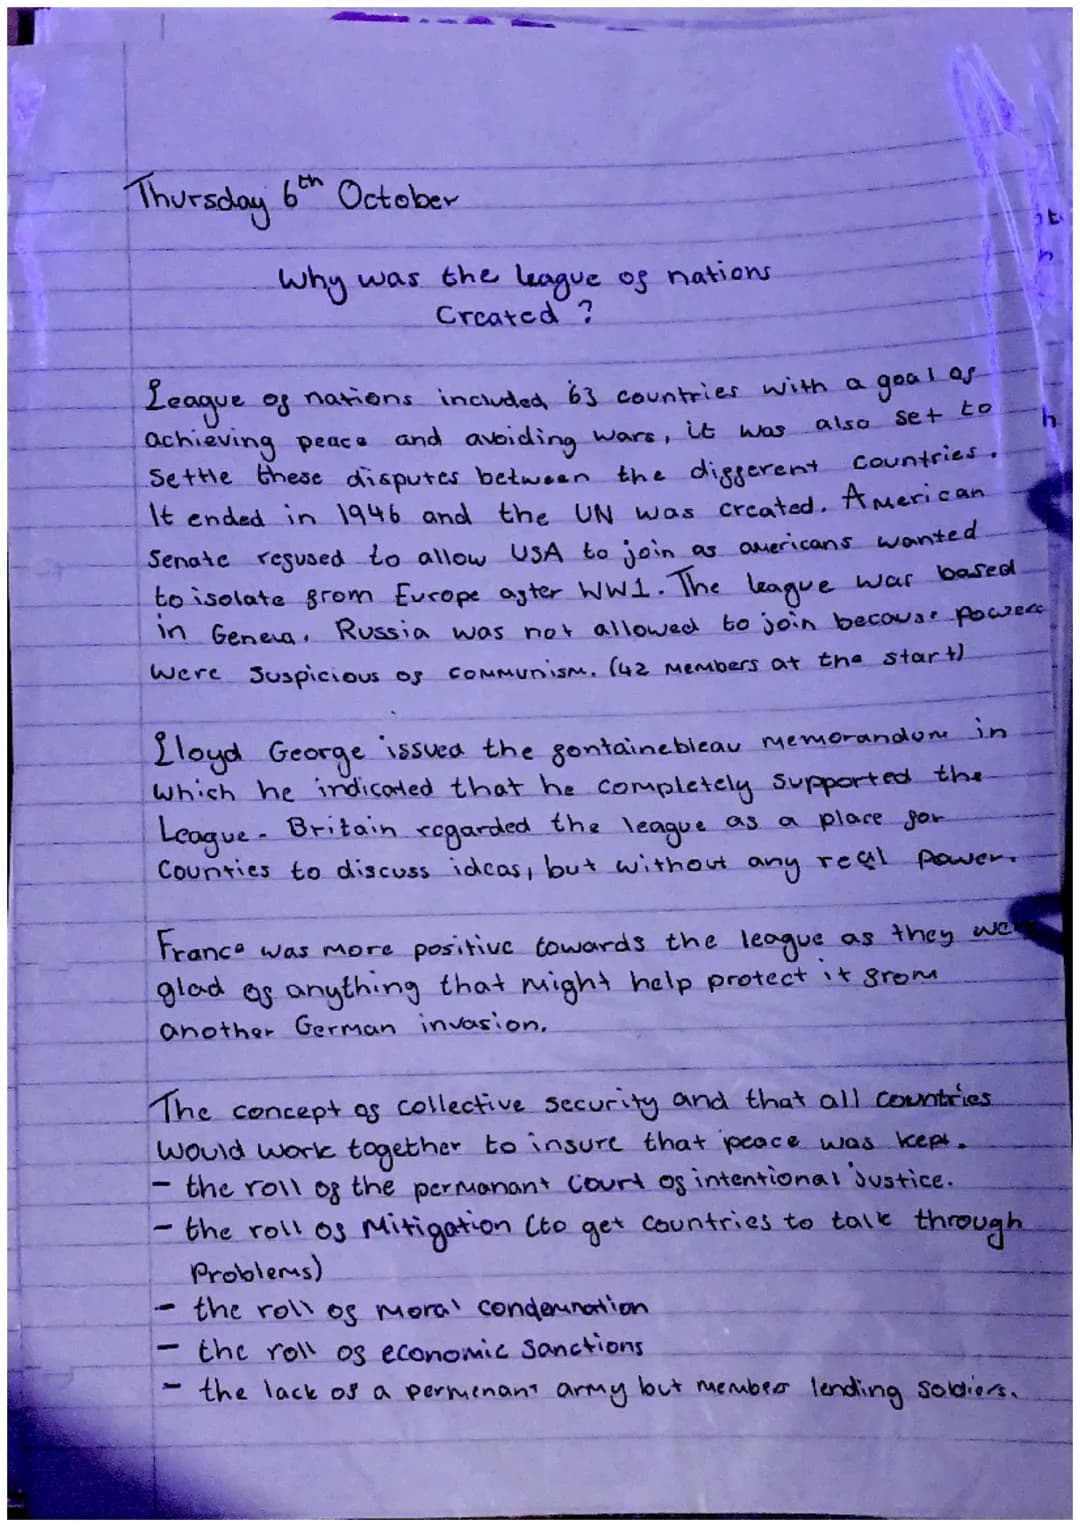 Thursday 6th October
Why was the league of nations
Created ?
League of nations included 63 countries with a goal of
achieving peace and avoiding wars, it was also set to
Settle these disputes between the different countries.
It ended in 1946 and the UN was created. American
Senate refused to allow USA to join as americans wanted
to isolate from Europe after WW1. The league was based
in Geneva. Russia was not allowed to join because powers
were suspicious of communism. (42 members at the start)
Lloyd George issued the fontainebleau memorandum in
which he indicated that he completely supported the
League. Britain regarded the league as a place for
Counties to discuss ideas, but without any real power.
France was more positive towards the league as they
glad of anything that might help protect it from
another German invasion.
The concept of collective security and that all countries
would work together to insure that peace was kept.
- the roll of the permanant Court of intentional Justice.
- the roll of Mitigation (to get countries to talk through
Problems)
- the roll of moral condemnation
- the roll of economic Sanctions
- the lack of a permenant army but members lending soldiers.